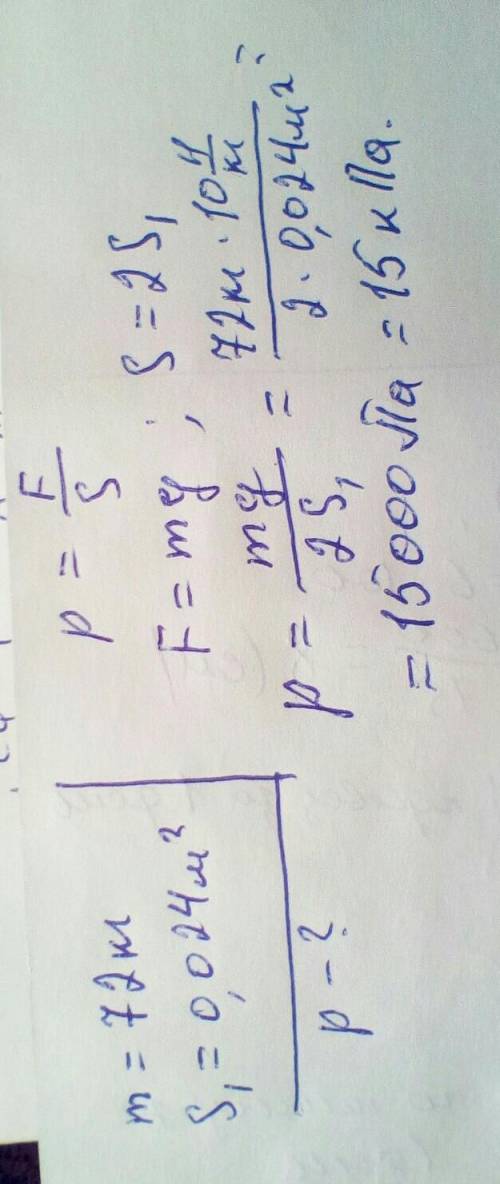 m = 72кг
S₁ = 0,024м²
p - ?
p = F/S
F = mg ; S = 2S₁
p = mg/2S₁ = 72кг · 10 Н/кг / 2 · 0,024м² =
= 15000 Па = 15 кПа.